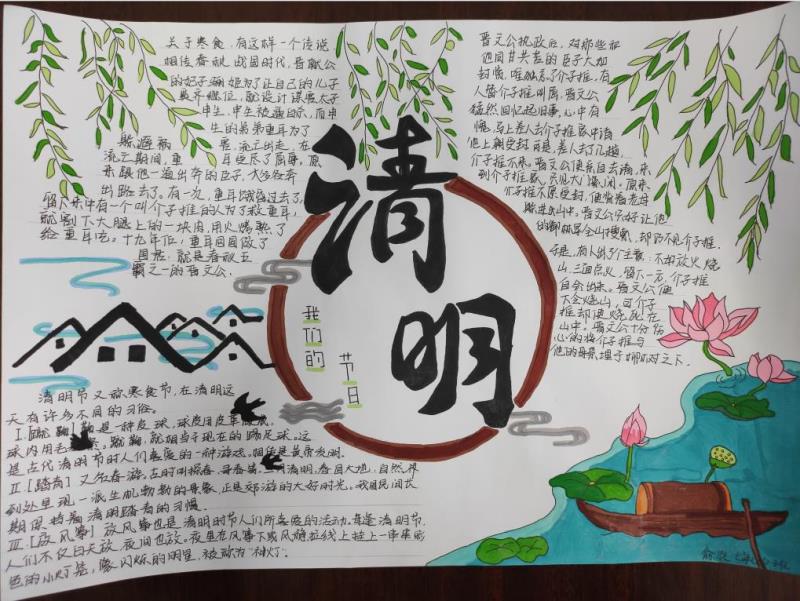 关于寒食，有这样一个传说，
相传春秋战国时代，晋献公
的妃子骊姬为了让自己的儿子
奚齐继位，就设计谋害太子
申生，申生被逼自杀。而申
生的弟弟重耳为了
躲避祸
害，流亡出走，在
流亡期间，重
耳受尽了屈辱。原
来跟他一道出奔的臣子，大多各奔
出路去了。有一次，重耳饿昏过去了，
留下来中有一个叫介子推的人为了救重耳，
就割下大腿上的一块肉，用火烤熟了
给重耳吃。十九年位，重耳回国做了
国君，就是春秋五
霸之一的晋文公。
晋文公执政后，对那些和
他同甘共苦的臣子大加
封赏，唯独忘了介子推。有
人替介子推叫屈，晋文公
猛然回忆起旧事，心中有
愧，马上差人去介子推家中请
他上朝受封，可是差人去了几趟，
介子推不来。晋文公便亲自去请，来
到介子推家，只见大门紧闭。原来
介子推不愿受封，便背着老母
躲进山中。晋文公只好让他
的御林军全山搜索，却仍不见介子推。
于是，有人出了个主意：不如放火烧
山，三面点火，留下一方，介子推
自会出来。晋文公便
下令烧山，可介子
推却被烧死在
山中！晋文公十分伤
心的将介子推与
他的母亲埋于柳树之下。
清
明
我们的
节日
清明节又称寒食节，在清明这
天有许多不同的习俗。
I.【蹴鞠】鞠是一种皮球，球皮用皮革做成，
球内用毛塞紧。蹴鞠，就相当于现在的踢足球。这
是古代清明节时人们喜爱的一种游戏。相传是黄帝发明。
II.【踏青】又名春游。古时叫探春、寻春等。三月清明，春回大地，自然界
到处呈现一派生机勃勃的景象，正是郊游的大好时光。我国民间长
期保持着清明踏青的习惯。
III.【放风筝】放风筝也是清明时节人们所喜爱的活动。每逢清明节，
人们不仅白天放，夜间也放。夜里在风筝下或风稳拉线上挂上一串串彩
色的小灯笼，像闪烁的明星，被称为"神灯"。